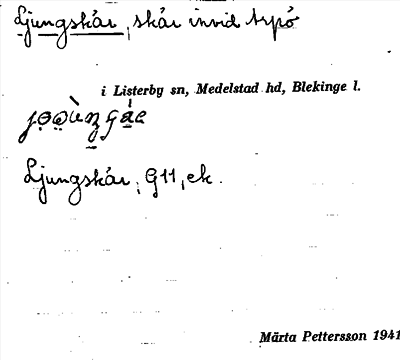 Ljungskär, skär invid Arpö
i Listerby sn, Medelstad hd, Blekinge l.
Ljungskär, G11, ek.
Märta Pettersson 1941